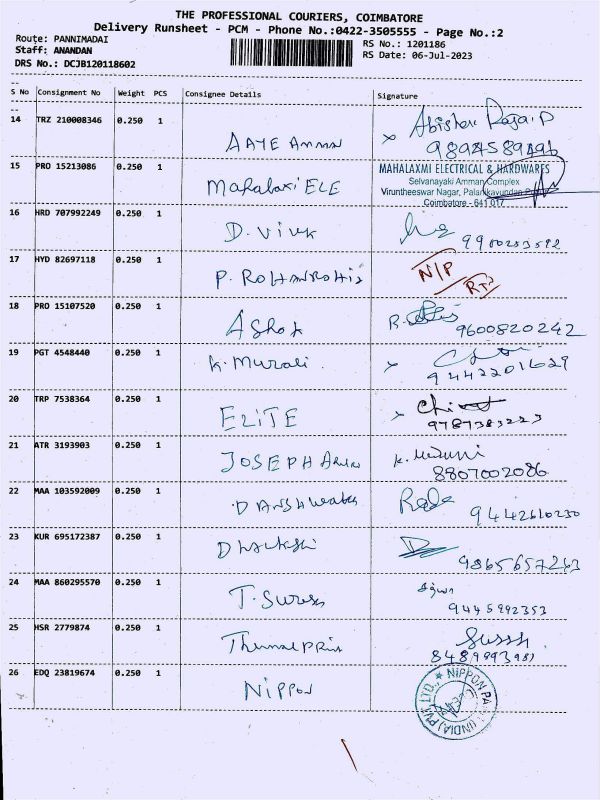 THE PROFESSIONAL COURIERS, COIMBATORE
Delivery Runsheet - PCM - Phone No.:0422-3505555 - Page No.:2
Route: PANNIMADAI
RS No.: 1201186
Staff: ANANDAN
RS Date: 06-Jul-2023
DRS No.: DCJB120118602
S No Consignment No Weight PCS Consignee Details Signature
14 TRZ 210008346 0.250 1
AAYE Amman
x Abishek Raja.P
9894589496
15 PRO 15213086 0.250 1
Mahalaxi ELE
MAHALAXMI ELECTRICAL & HARDWARES
Selvanayaki Amman Complex
Viruntheeswar Nagar, Palanikavundan
Coimbatore - 641 017
16 HRD 707992249 0.250 1
D. Vivk
17 HYD 82697118 0.250 1
P. ROHANROHIS
N/P
18 PRO 15107520 0.250 1
Ashok
9600820242
19 PGT 4548440 0.250 1
K. Murali
x
9442201629
20 TRP 7538364 0.250 1
ELITE
x
9787383223
21 ATR 3193903 0.250 1
JOSEPH
8807002086
22 MAA 103592009 0.250 1
9442610230
23 KUR 695172387 0.250 1
9865657243
24 MAA 860295570 0.250 1
T. Sures
9445992353
25 HSR 2779874 0.250 1
Thermal Prin
26 EDQ 23819674 0.250 1
NIPPON
NIPPON PA (INDIA) PVT. LTD.,